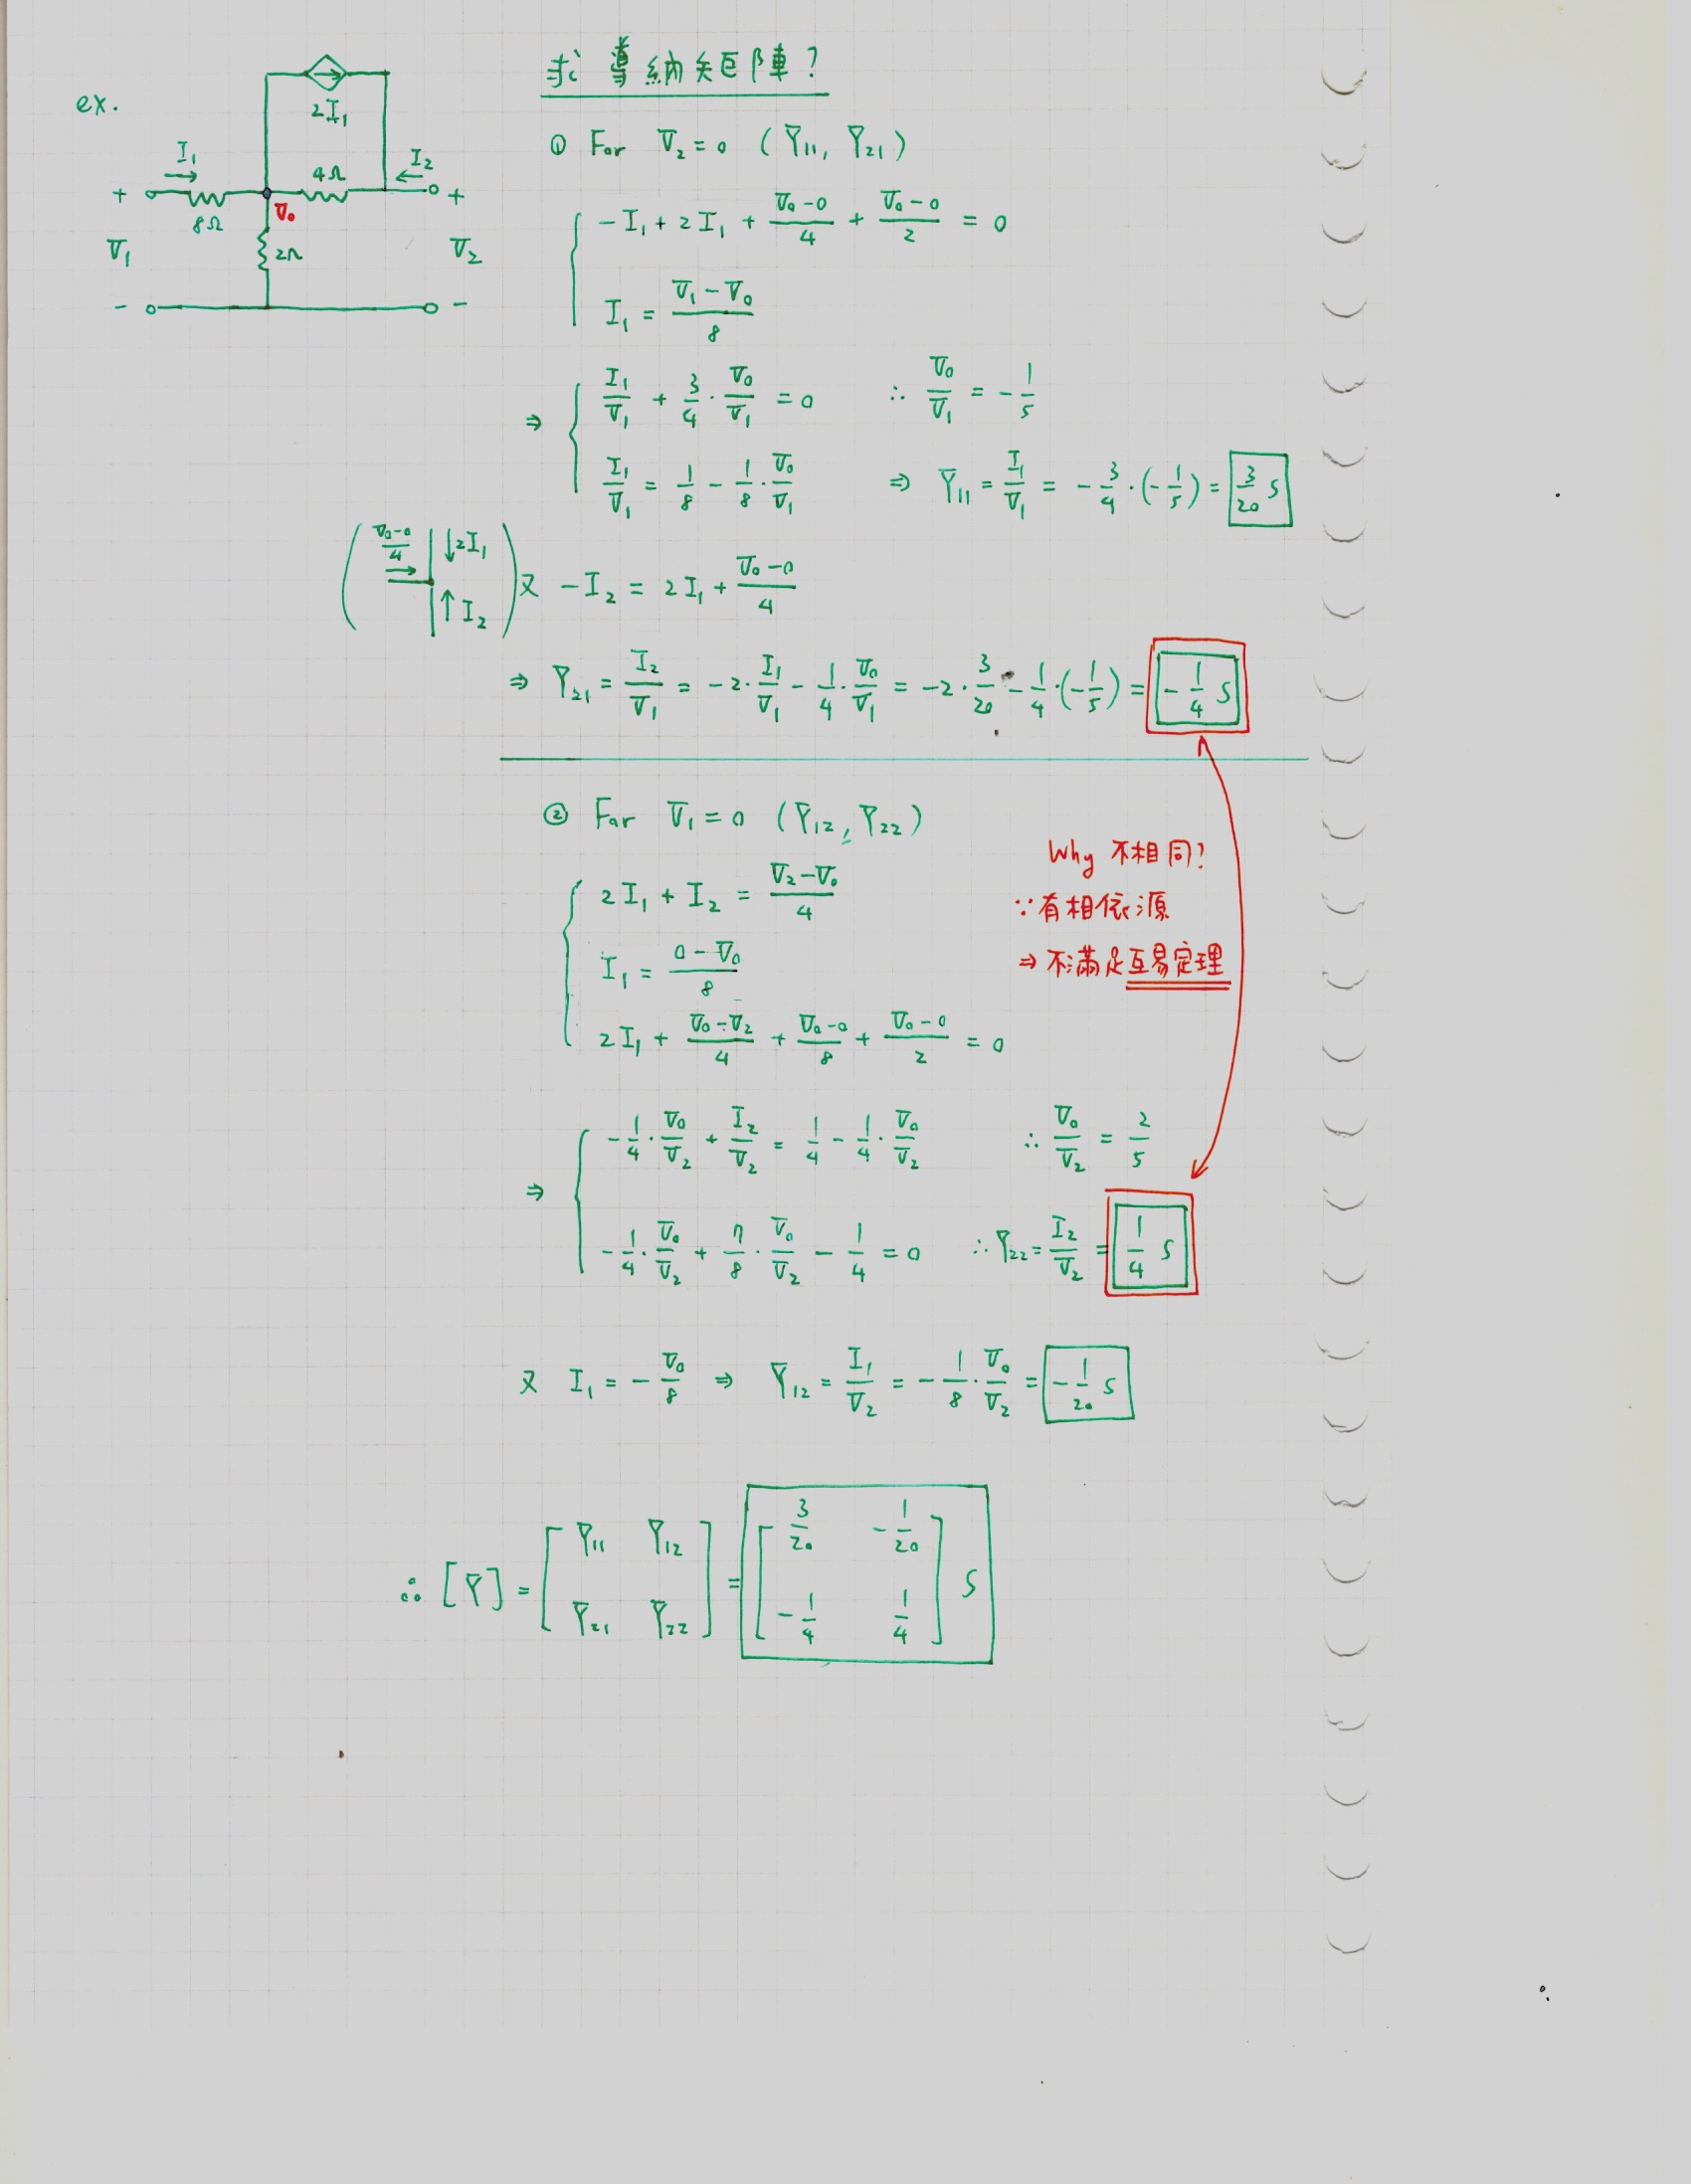 ex.
2I₁
I₁
4Ω
I₂
+
8Ω
V₀
+
V₁
2Ω
V₂
-
-
求導納矩陣？
① For V₂ = 0 (Y₁₁, Y₂₁)
-I₁ + 2I₁ + (V₀-0)/4 + (V₀-0)/2 = 0
I₁ = (V₁ - V₀)/8
⇒ I₁/V₁ + 3/4 · V₀/V₁ = 0 ∴ V₀/V₁ = -1/5
I₁/V₁ = 1/8 - 1/8 · V₀/V₁ ⇒ Y₁₁ = I₁/V₁ = -3/4 · (-1/5) = 3/20 S
( (V₀-0)/4 → ↓2I₁ ↑I₂ ) 又 -I₂ = 2I₁ + (V₀-0)/4
⇒ Y₂₁ = I₂/V₁ = -2 · I₁/V₁ - 1/4 · V₀/V₁ = -2 · 3/20 - 1/4 · (-1/5) = -1/4 S
② For V₁ = 0 (Y₁₂, Y₂₂)
2I₁ + I₂ = (V₂-V₀)/4
I₁ = (0-V₀)/8
2I₁ + (V₀-V₂)/4 + (V₀-0)/8 + (V₀-0)/2 = 0
Why 不相同？
∵有相依源
⇒ 不滿足互易定理
⇒ -1/4 · V₀/V₂ + I₂/V₂ = 1/4 - 1/4 · V₀/V₂ ∴ V₀/V₂ = 2/5
-1/4 · V₀/V₂ + 7/8 · V₀/V₂ - 1/4 = 0 ∴ Y₂₂ = I₂/V₂ = 1/4 S
又 I₁ = -V₀/8 ⇒ Y₁₂ = I₁/V₂ = -1/8 · V₀/V₂ = -1/20 S
∴ [Y] = [Y₁₁ Y₁₂ ; Y₂₁ Y₂₂] = [3/20 -1/20 ; -1/4 1/4] S